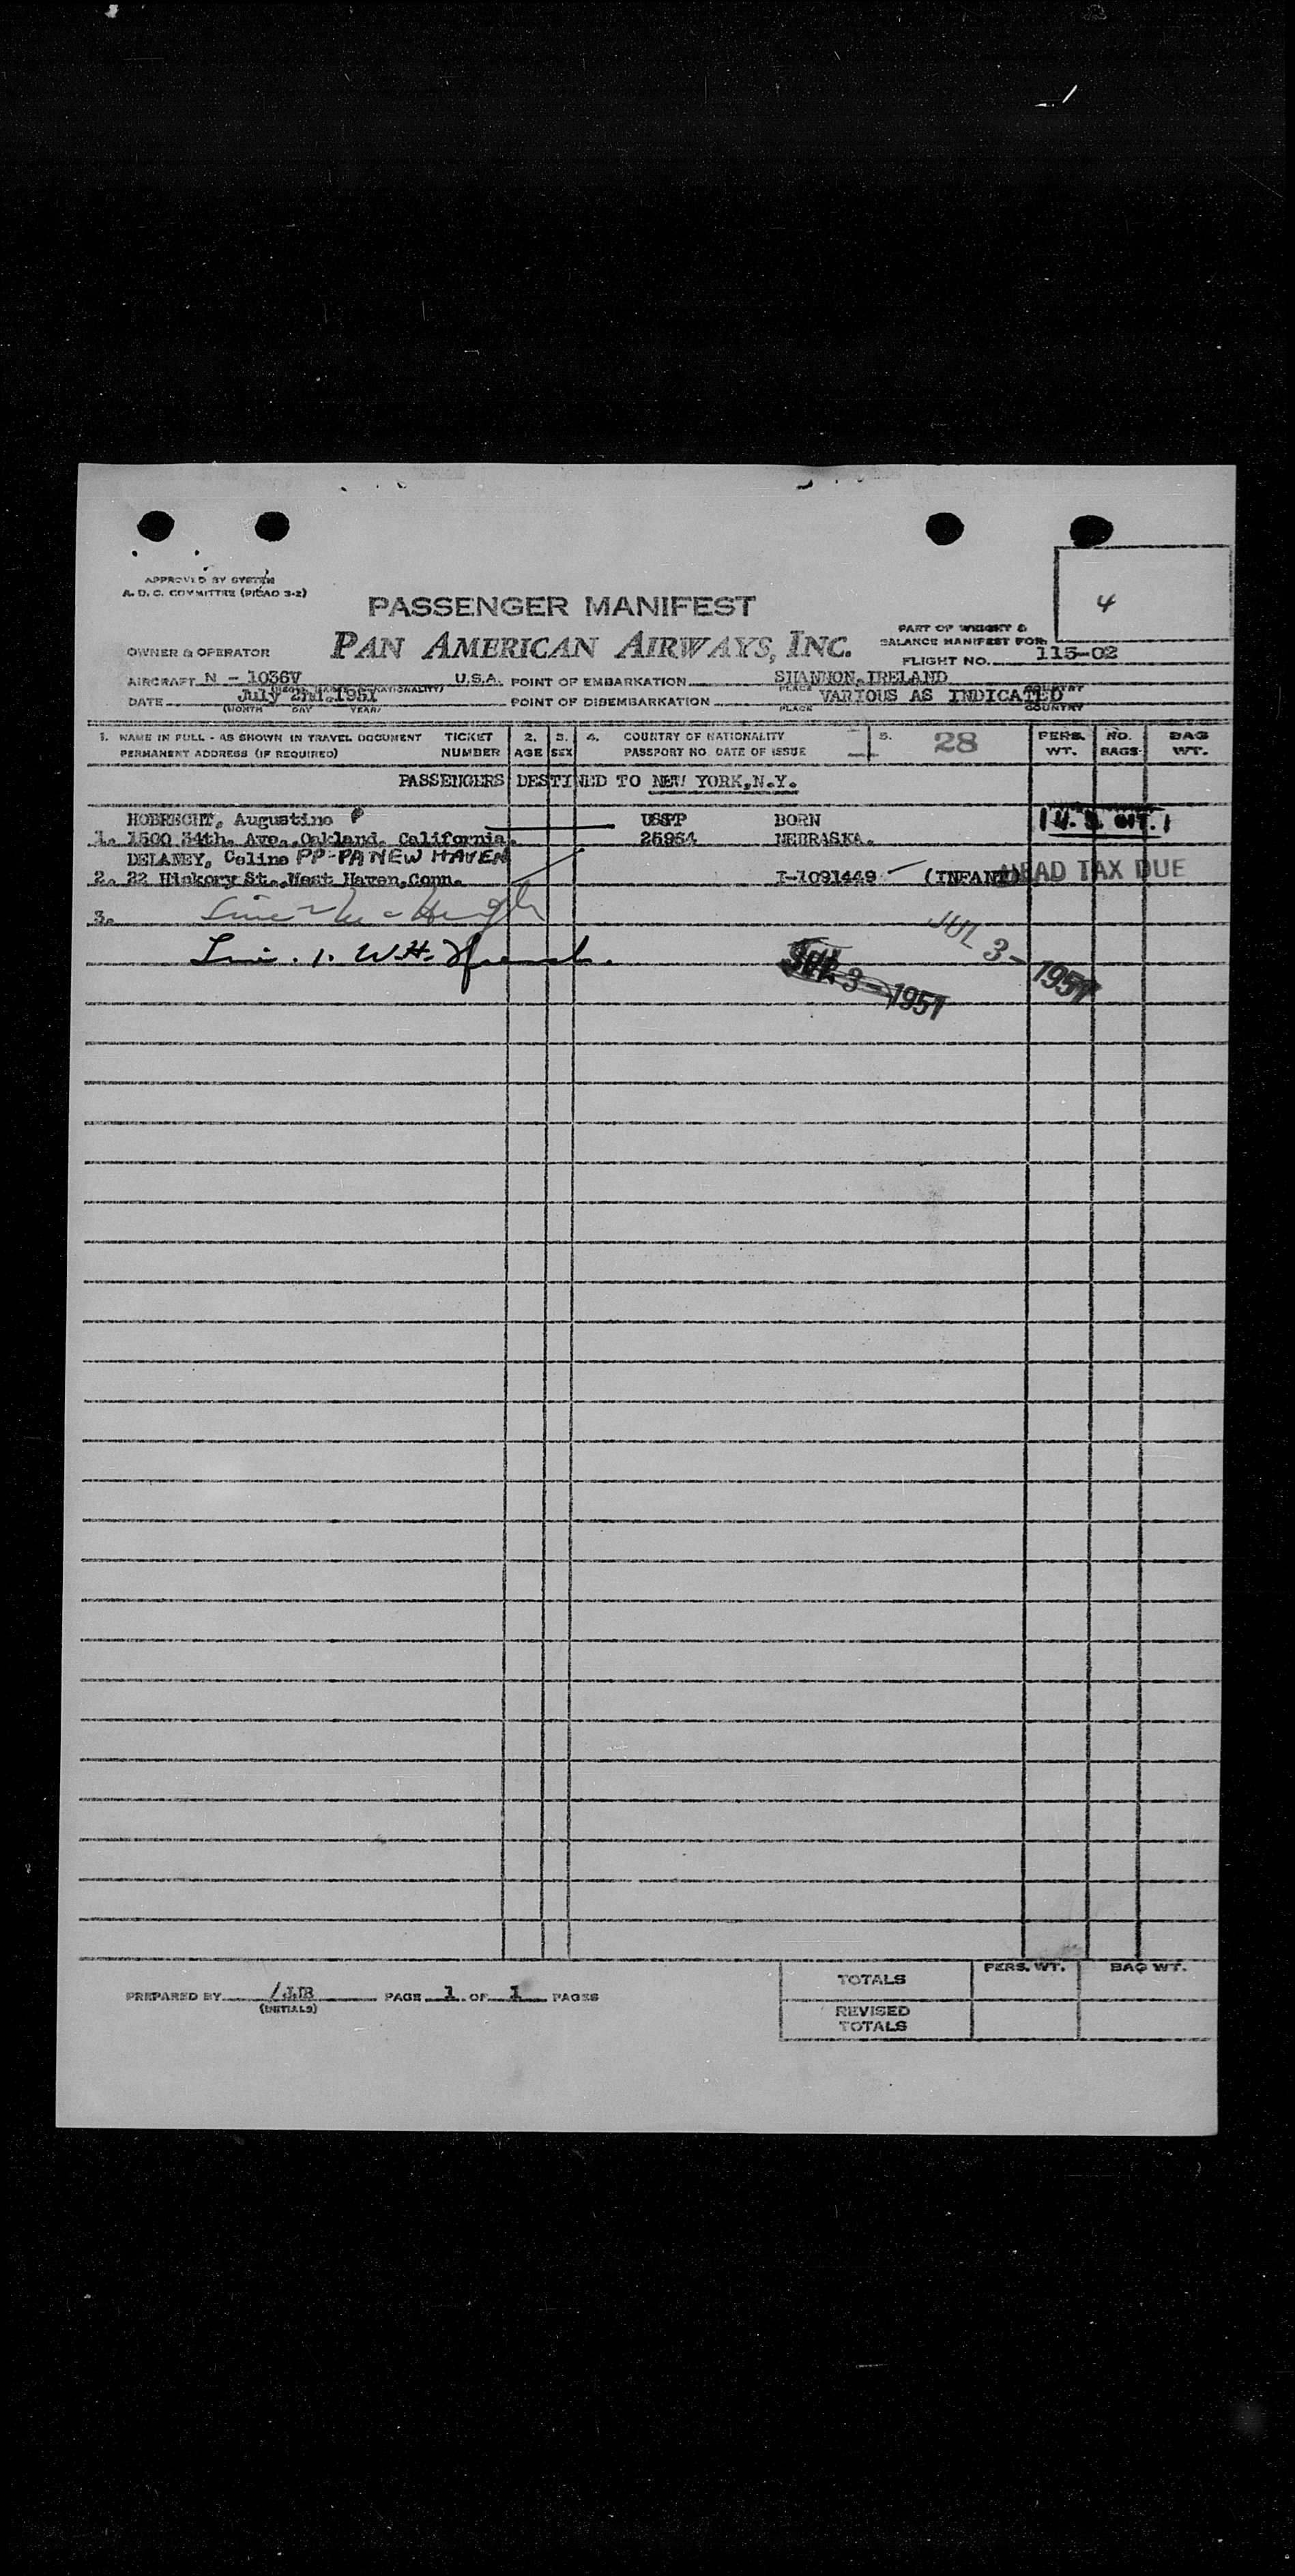 APPROVED BY SYSTEM
A. D. C. COMMITTEE (PICAO 3-2)
4
PASSENGER MANIFEST
PART OF WEIGHT &
BALANCE MANIFEST FOR
OWNER & OPERATOR
PAN AMERICAN AIRWAYS, INC.
FLIGHT NO. 115-02
AIRCRAFT N - 1036V U.S.A. POINT OF EMBARKATION SHANNON, IRELAND
DATE July 2nd. 1951 POINT OF DISEMBARKATION VARIOUS AS INDICATED
(MONTH DAY YEAR) PLACE COUNTRY
1. NAME IN FULL - AS SHOWN IN TRAVEL DOCUMENT TICKET 2. 3. 4. COUNTRY OF NATIONALITY 5. 28 PERS. NO. BAG
PERMANENT ADDRESS (IF REQUIRED) NUMBER AGE SEX PASSPORT NO. DATE OF ISSUE WT. BAGS WT.
PASSENGERS DESTINED TO NEW YORK, N.Y.
HOBRECHT, Augustine USPP BORN
1. 1500 34th. Ave., Oakland. California. 25954 NEBRASKA. U. S. CIT.
DELANEY, Celine PP-PA NEW HAVEN
2. 22 Hickory St., West Haven, Conn. I-1091449 (INFANT) HEAD TAX DUE
3.
JUL 3 - 1951
W.H.
JUL 3 - 1951
PREPARED BY /JB PAGE 1 OF 1 PAGES
(INITIALS)
PERS. WT. BAG WT.
TOTALS
REVISED
TOTALS